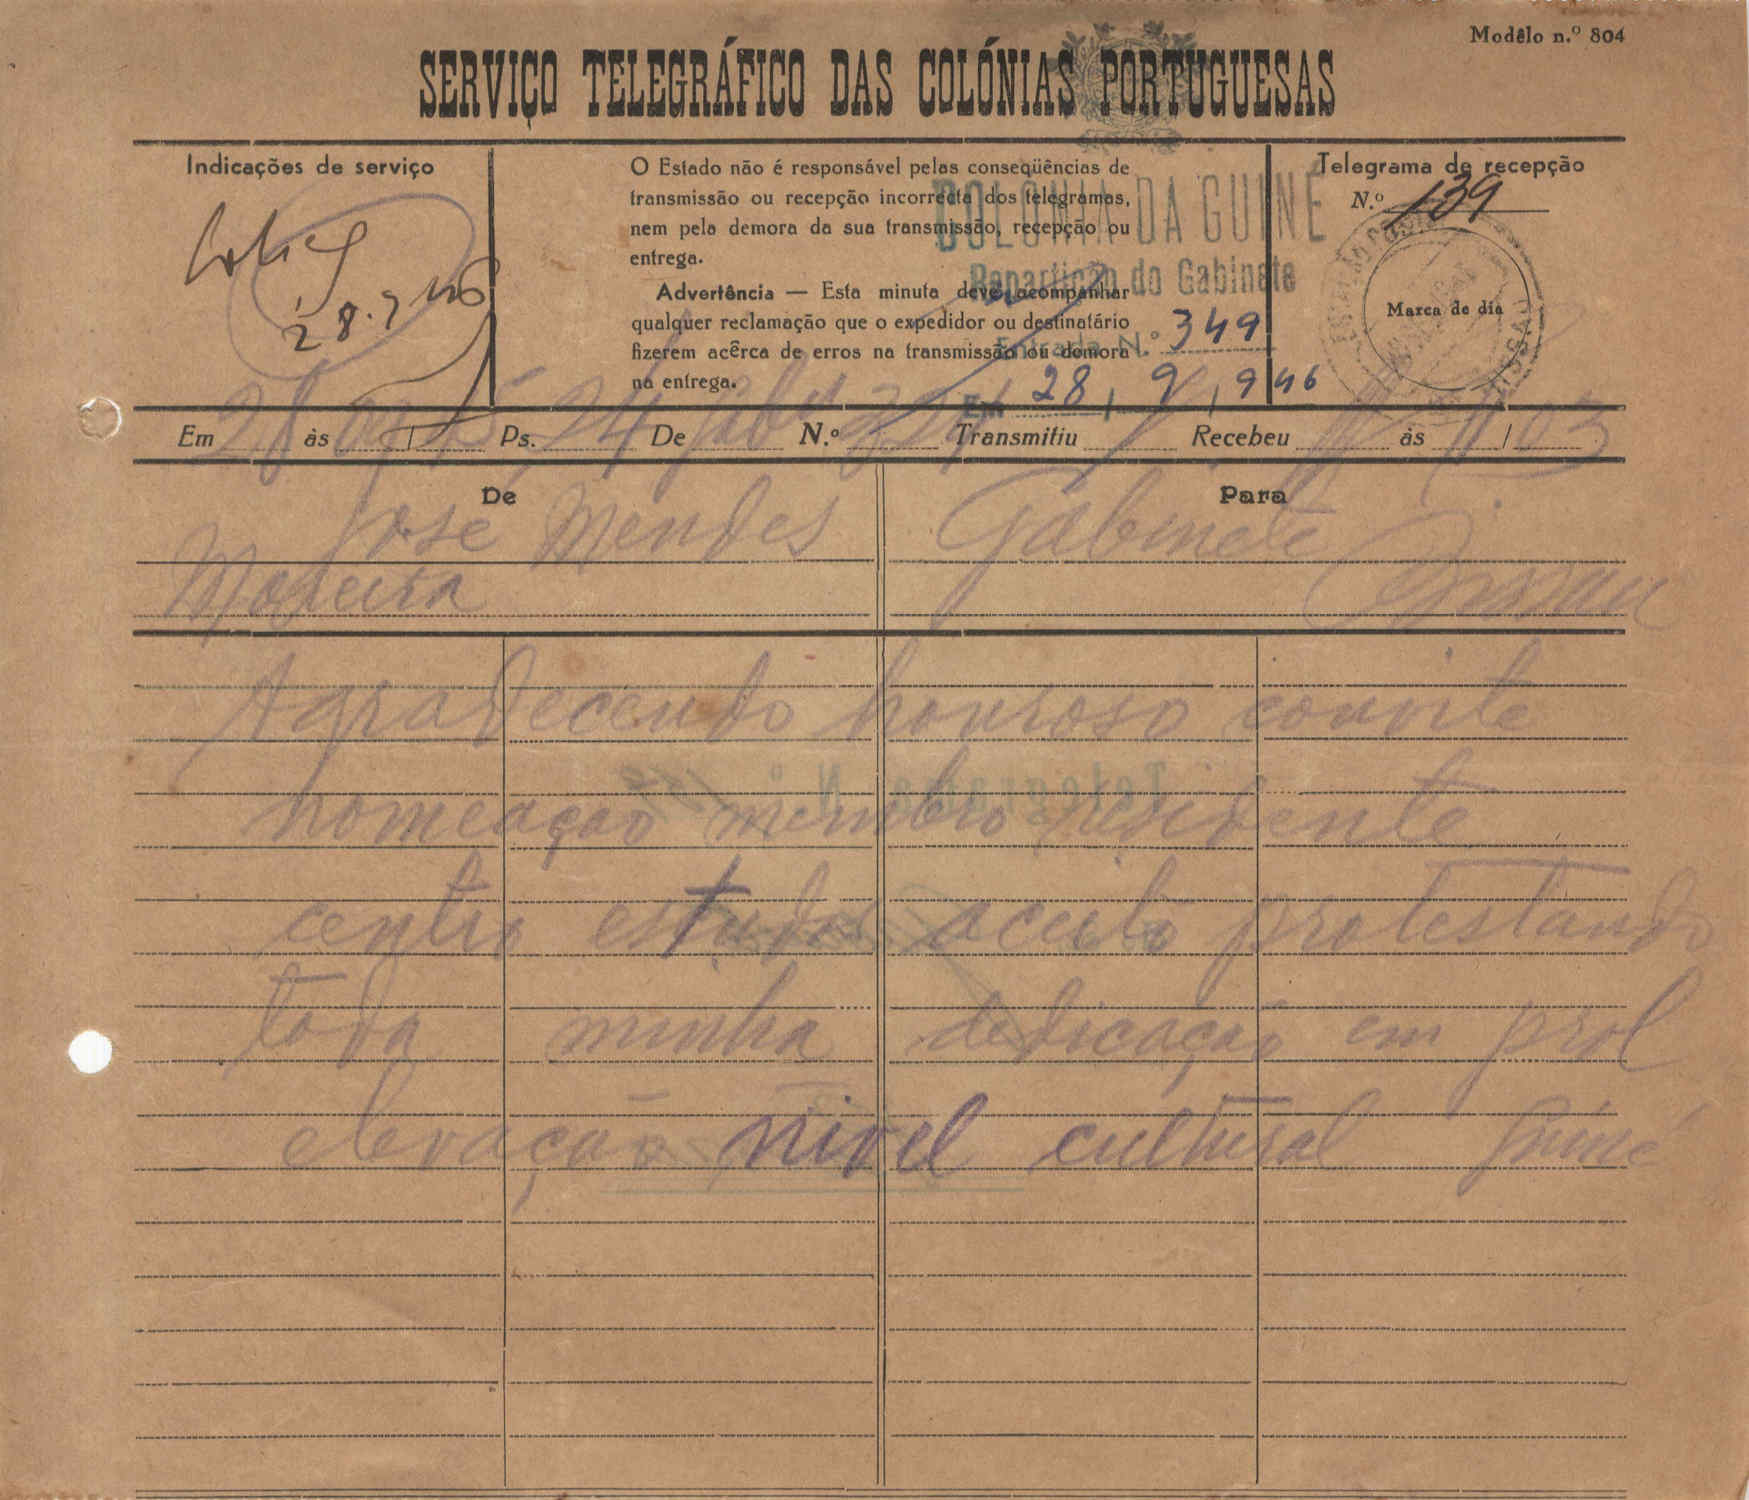 Modêlo n.º 804
SERVIÇO TELEGRÁFICO DAS COLÓNIAS PORTUGUESAS
Indicações de serviço
28.9.46
O Estado não é responsável pelas conseqüências de
transmissão ou recepção incorrecta dos telegramas,
nem pela demora da sua transmissão, recepção ou
entrega.
Advertência — Esta minuta deve acompanhar
qualquer reclamação que o expedidor ou destinatário
fizerem acêrca de erros na transmissão ou demora
na entrega.
COLONIA DA GUINÉ
Repartição do Gabinete
Entrada N.º 349
Em 28, 9, 946
Telegrama de recepção
N.º 139
Marca do dia
Em 28 às / Ps. 24 De N.º Transmitiu Recebeu às /
De
José Mendes
Moreira
Para
Gabinete
Bissau
Agradecendo honroso convite
nomeação membro residente
centro estudos aceito protestando
toda minha dedicação em prol
elevação nivel cultural Guiné
Telegrama N.º